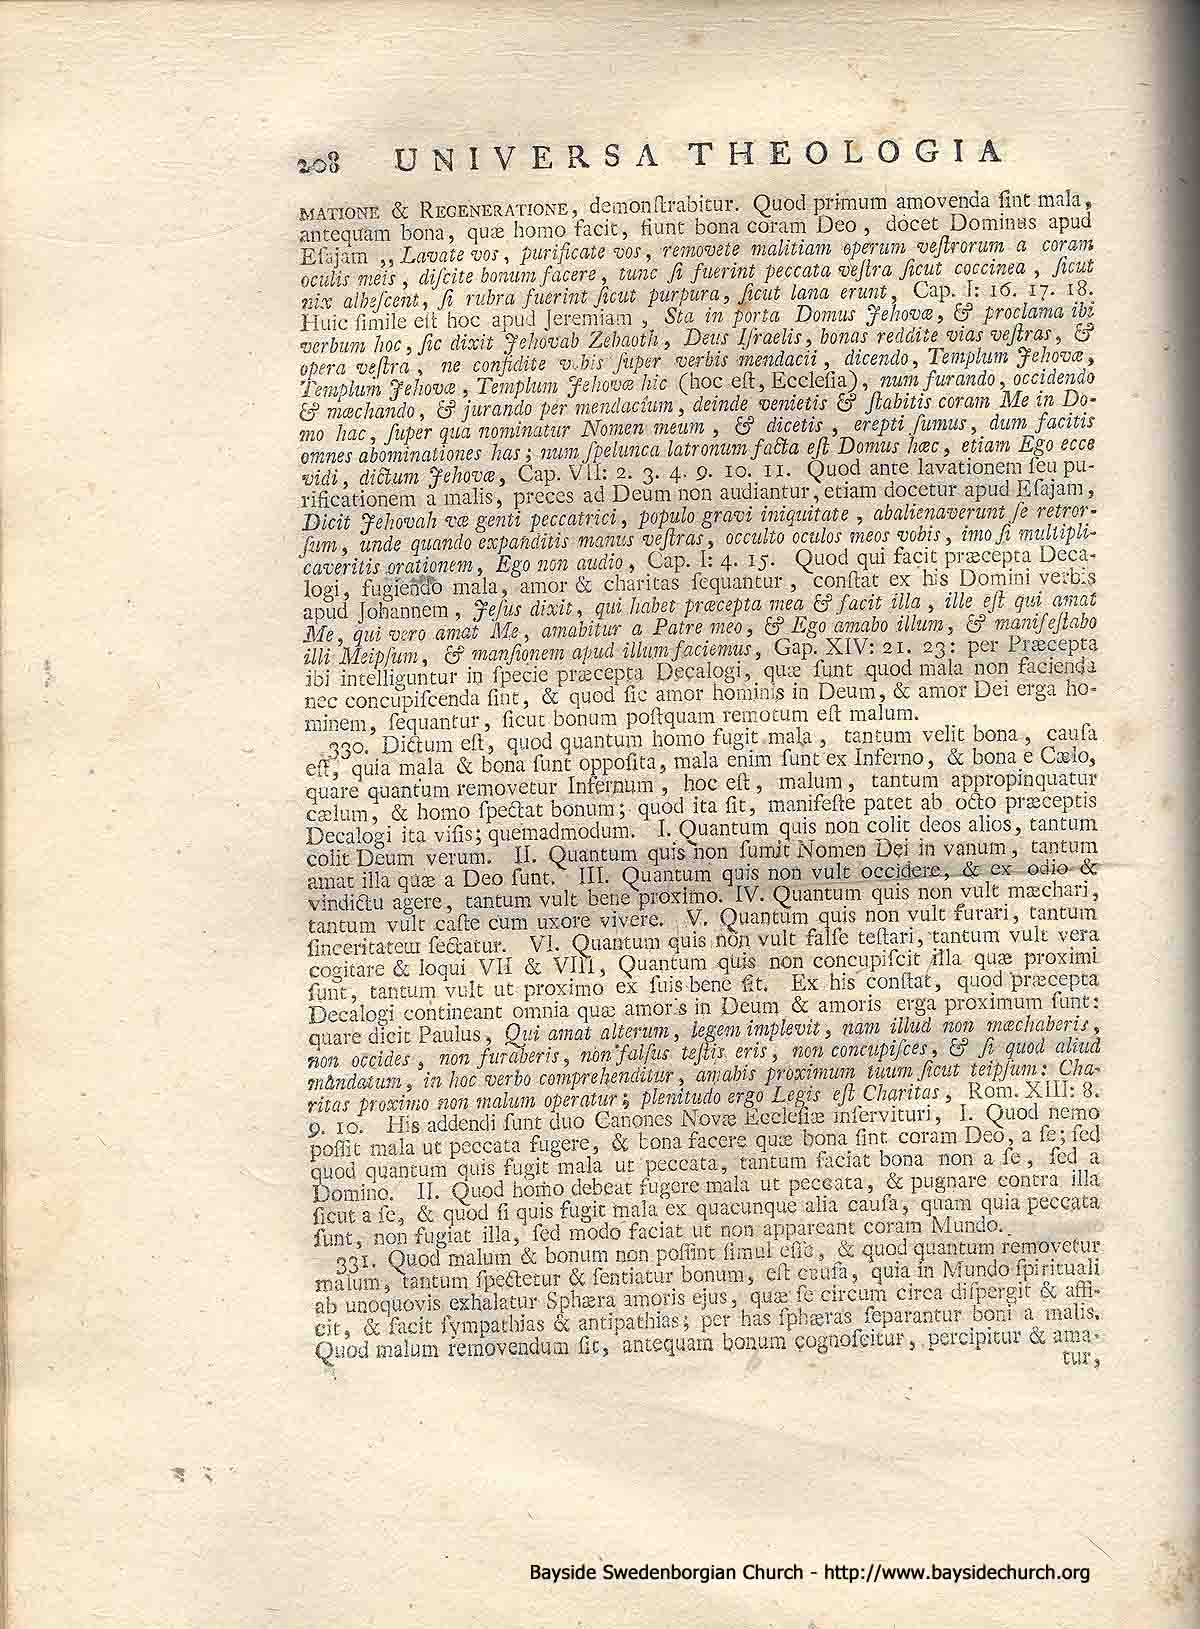 208 UNIVERSA THEOLOGIA
MATIONE & REGENERATIONE, demonſtrabitur. Quod primum amovenda ſint mala,
antequam bona, quæ homo facit, fiunt bona coram Deo, docet Dominus apud
Eſajam ,, Lavate vos, purificate vos, removete malitiam operum veſtrorum a coram
oculis meis, diſcite bonum facere, tunc ſi fuerint peccata veſtra ſicut coccinea, ſicut
nix albeſcent, ſi rubra fuerint ſicut purpura, ſicut lana erunt, Cap. I: 16. 17. 18.
Huic ſimile eſt hoc apud Jeremiam, Sta in porta Domus Jehovæ, & proclama ibi
verbum hoc, ſic dixit Jehovah Zebaoth, Deus Iſraelis, bonas reddite vias veſtras, &
opera veſtra, ne confidite vobis ſuper verbis mendacii, dicendo, Templum Jehovæ,
Templum Jehovæ, Templum Jehovæ hic (hoc eſt, Eccleſia), num furando, occidendo
& mœchando, & jurando per mendacium, deinde venietis & ſtabitis coram Me in Do-
mo hac, ſuper qua nominatur Nomen meum, & dicetis, erepti ſumus, dum facitis
omnes abominationes has; num ſpelunca latronum facta eſt Domus hæc, etiam Ego ecce
vidi, dictum Jehovæ, Cap. VII: 2. 3. 4. 9. 10. 11. Quod ante lavationem ſeu pu-
rificationem a malis, preces ad Deum non audiantur, etiam docetur apud Eſajam,
Dicit Jehovah væ genti peccatrici, populo gravi iniquitate, abalienaverunt ſe retror-
ſum, unde quando expanditis manus veſtras, occulto oculos meos vobis, imo ſi multipli-
caveritis orationem, Ego non audio, Cap. I: 4. 15. Quod qui facit præcepta Deca-
logi, fugiendo mala, amor & charitas ſequantur, conſtat ex his Domini verbis
apud Johannem, Jeſus dixit, qui habet præcepta mea & facit illa, ille eſt qui amat
Me, qui vero amat Me, amabitur a Patre meo, & Ego amabo illum, & manifeſtabo
illi Meipſum, & manſionem apud illum faciemus, Gap. XIV: 21. 23: per Præcepta
ibi intelliguntur in ſpecie præcepta Decalogi, quæ ſunt quod mala non facienda
nec concupiſcenda ſint, & quod ſic amor hominis in Deum, & amor Dei erga ho-
minem, ſequantur, ſicut bonum poſtquam remotum eſt malum.
330. Dictum eſt, quod quantum homo fugit mala, tantum velit bona, cauſa
eſt, quia mala & bona ſunt oppoſita, mala enim ſunt ex Inferno, & bona e Cælo,
quare quantum removetur Infernum, hoc eſt, malum, tantum appropinquatur
cælum, & homo ſpectat bonum; quod ita ſit, manifeſte patet ab octo præceptis
Decalogi ita viſis; quemadmodum. I. Quantum quis non colit deos alios, tantum
colit Deum verum. II. Quantum quis non ſumit Nomen Dei in vanum, tantum
amat illa quæ a Deo ſunt. III. Quantum quis non vult occidere, & ex odio &
vindictu agere, tantum vult bene proximo. IV. Quantum quis non vult mæchari,
tantum vult caſte cum uxore vivere. V. Quantum quis non vult furari, tantum
ſinceritatem ſectatur. VI. Quantum quis non vult falſe teſtari, tantum vult vera
cogitare & loqui VII & VIII, Quantum quis non concupiſcit illa quæ proximi
ſunt, tantum vult ut proximo ex ſuis bene ſit. Ex his conſtat, quod præcepta
Decalogi contineant omnia quæ amoris in Deum & amoris erga proximum ſunt:
quare dicit Paulus, Qui amat alterum, legem implevit, nam illud non mœchaberis,
non occides, non furaberis, non falſus teſtis eris, non concupiſces, & ſi quod aliud
mandatum, in hoc verbo comprehenditur, amabis proximum tuum ſicut teipſum: Cha-
ritas proximo non malum operatur; plenitudo ergo Legis eſt Charitas, Rom. XIII: 8.
9. 10. His addendi ſunt duo Canones Novæ Eccleſiæ inſervituri, I. Quod nemo
poſſit mala ut peccata fugere, & bona facere quæ bona ſint coram Deo, a ſe; ſed
quod quantum quis fugit mala ut peccata, tantum faciat bona non a ſe, ſed a
Domino. II. Quod homo debeat fugere mala ut peccata, & pugnare contra illa
ſicut a ſe, & quod ſi quis fugit mala ex quacunque alia cauſa, quam quia peccata
ſunt, non fugiat illa, ſed modo faciat ut non appareant coram Mundo.
331. Quod malum & bonum non poſſint ſimul eſſe, & quod quantum removetur
malum, tantum ſpectetur & ſentiatur bonum, eſt cauſa, quia in Mundo ſpirituali
ab unoquovis exhalatur Sphæra amoris ejus, quæ ſe circum circa diſpergit & affi-
cit, & facit ſympathias & antipathias; per has ſphæras ſeparantur boni a malis.
Quod malum removendum ſit, antequam bonum cognoſcitur, percipitur & ama-
tur,
Bayside Swedenborgian Church - http://www.baysidechurch.org